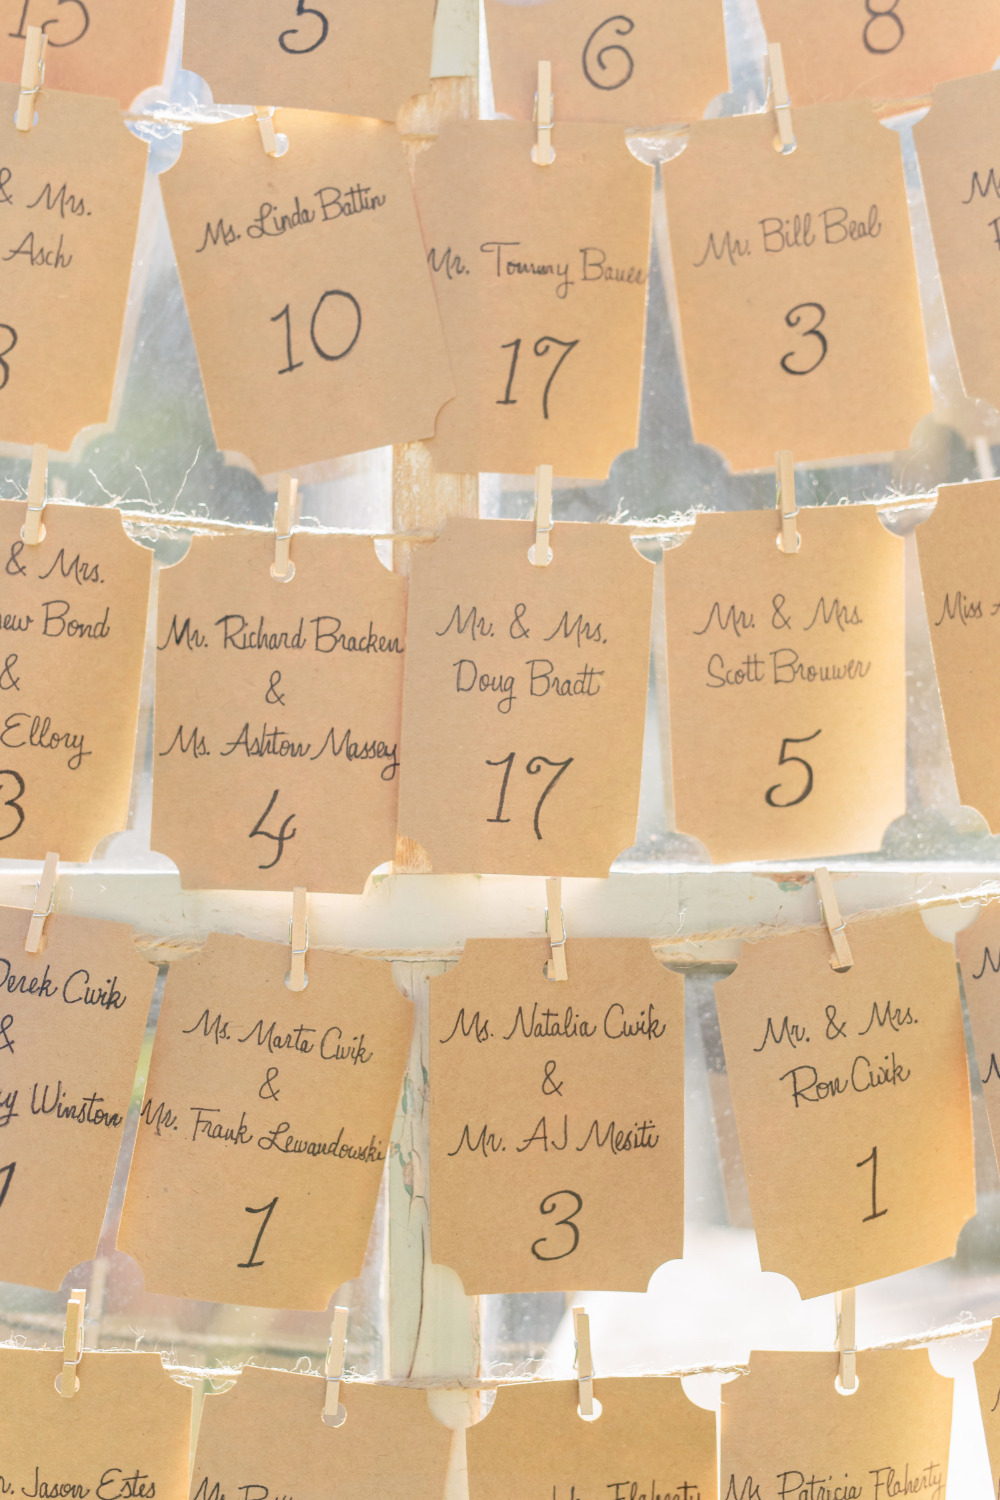 5
6
8
& Mrs.
Asch
Ms. Linda Battin
10
Mr. Tommy Bauer
17
Mr. Bill Beal
3
& Mrs.
Bond
&
Ellory
3
Mr. Richard Bracken
&
Ms. Ashton Massey
4
Mr. & Mrs.
Doug Bradt
17
Mr. & Mrs.
Scott Brouwer
5
Miss
Derek Cwik
&
Winston
1
Ms. Marta Cwik
&
Mr. Frank Lewandowski
1
Ms. Natalia Cwik
&
Mr. AJ Mesiti
3
Mr. & Mrs.
Ron Cwik
1
Jason Estes
Flaherty
Ms. Patricia Flaherty